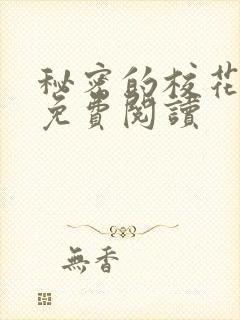 秘密的校花
免費閱讀
無香